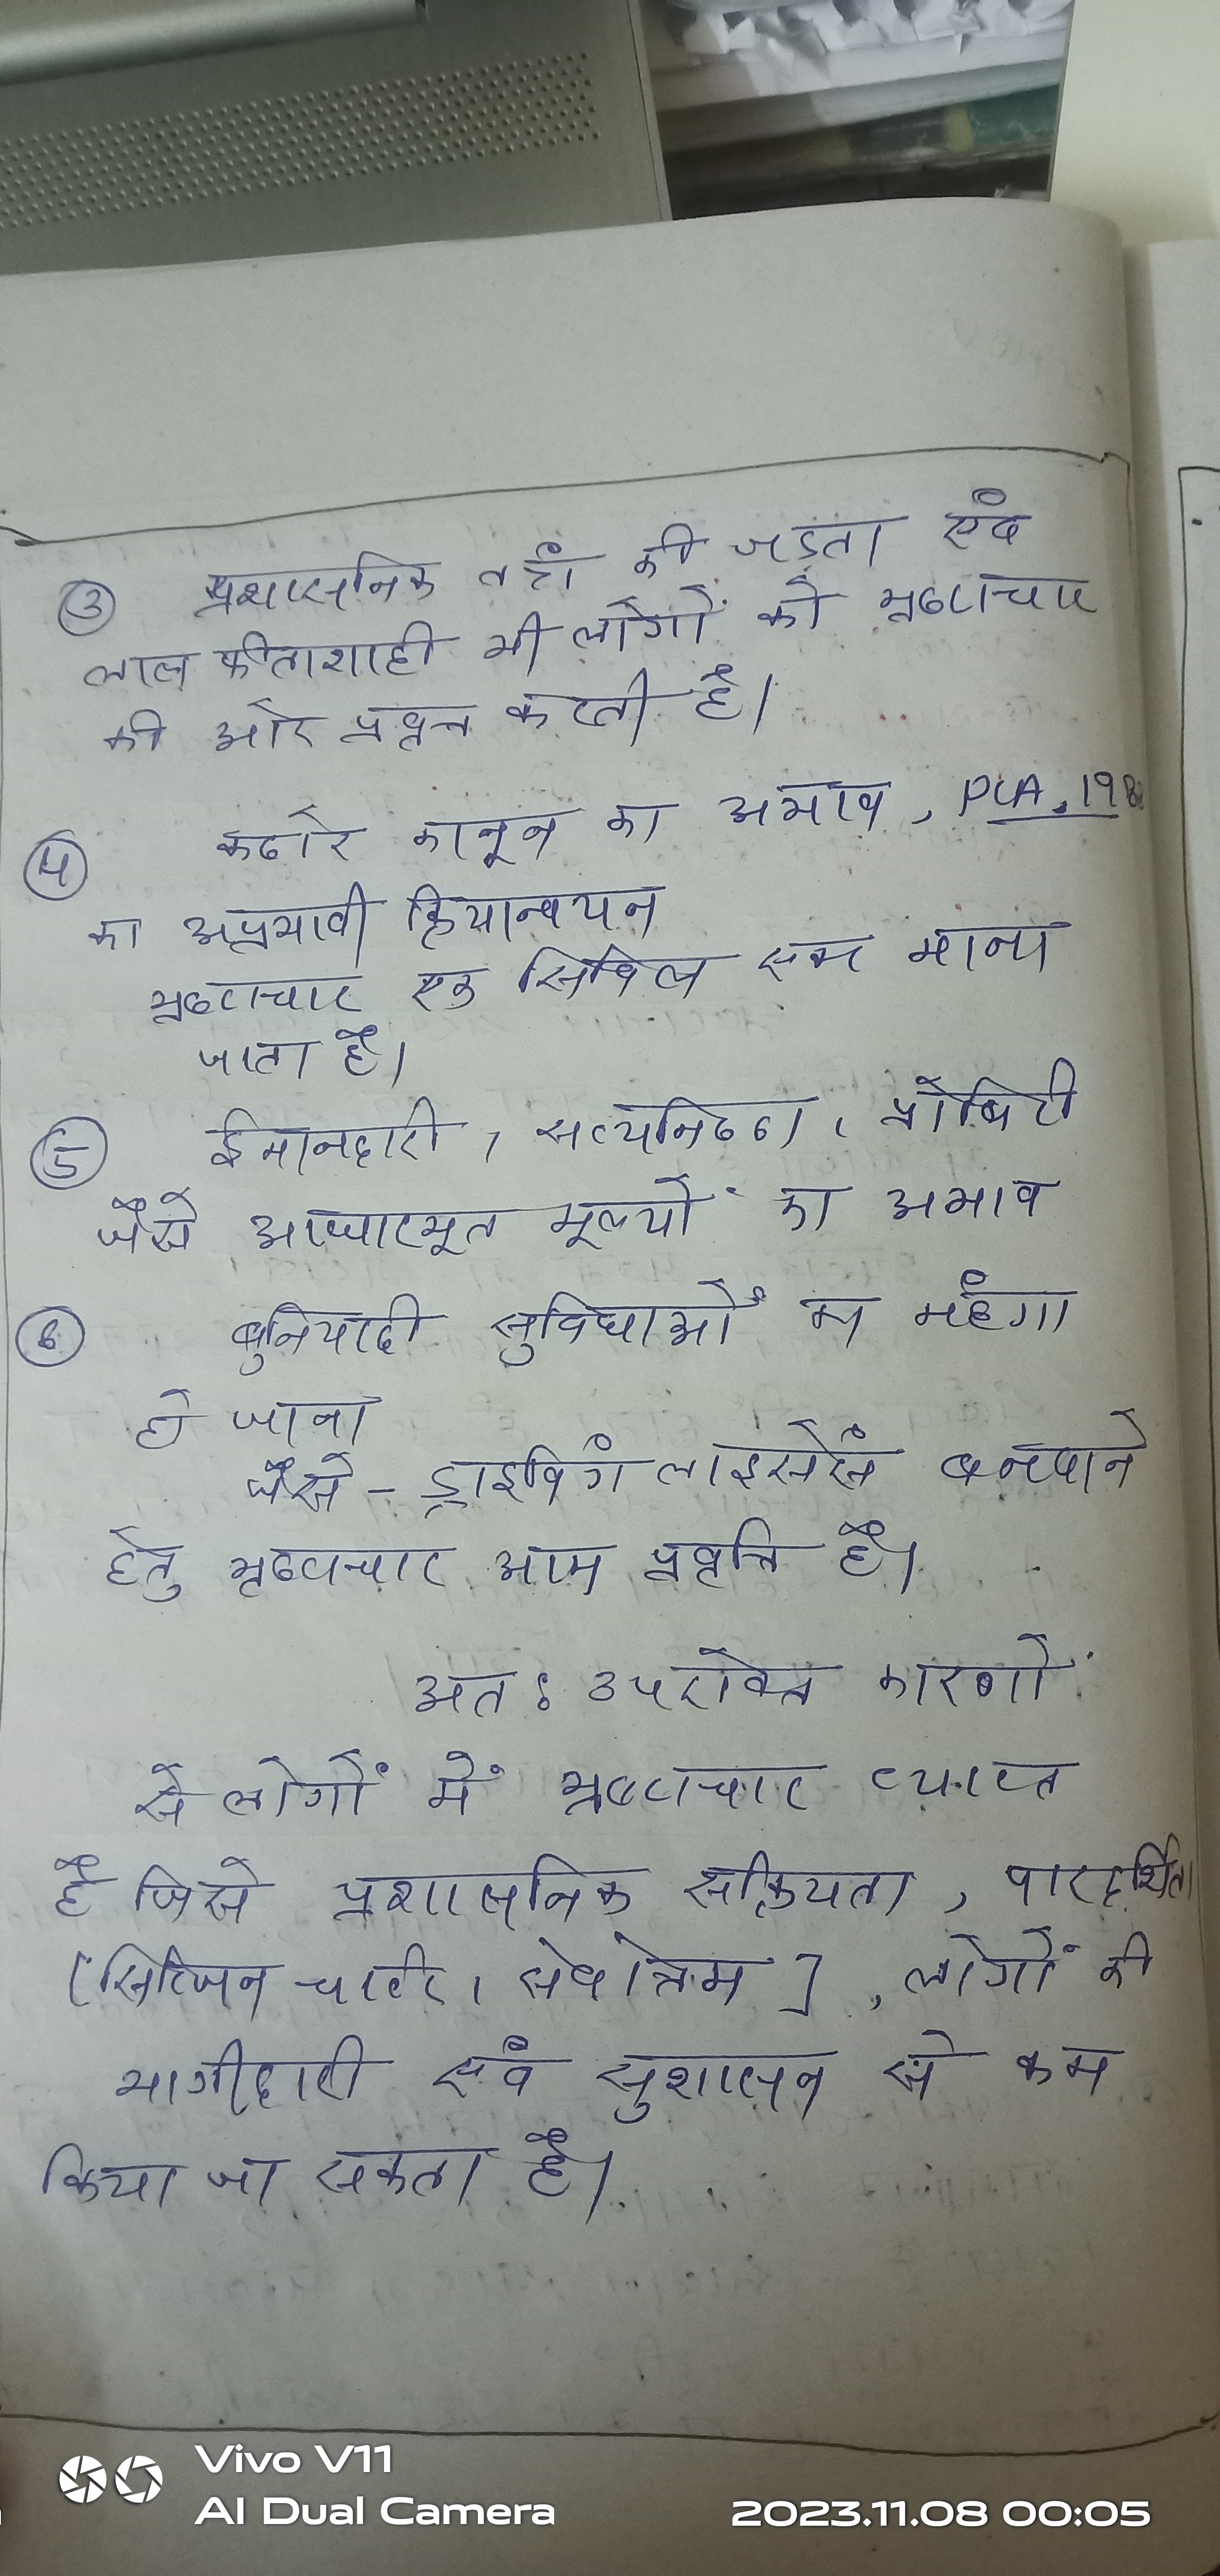 ③ प्रशासनिक तत्रों की जड़ता एंव
लाल फीताशाही भी लोगों को भ्रष्टाचार
की ओर प्रवृत्त करती है।
④ कठोर कानून का अभाव, PCA, 198
का अप्रभावी क्रियान्वयन
भ्रष्टाचार एक सिविल मान्य
जाता है।
⑤ ईमानदारी, सत्यनिष्ठा, प्रोबिटी
जैसे आधारभूत मूल्यों का अभाव
⑥ बुनियादी सुविधाओं का महंगा
हो जाना
जैसे - ड्राइविंग लाइसेंस बनवाने
हेतु भ्रष्टाचार आम प्रवृत्ति है।
अतः उपरोक्त कारणों
से लोगों में भ्रष्टाचार व्याप्त
है जिसे प्रशासनिक सक्रियता, पारदर्शिता
[सिटिजन चार्टर, सेवोत्तम], लोगों की
भागीदारी एवं सुशासन से कम
किया जा सकता है।
Vivo V11
AI Dual Camera
2023.11.08 00:05